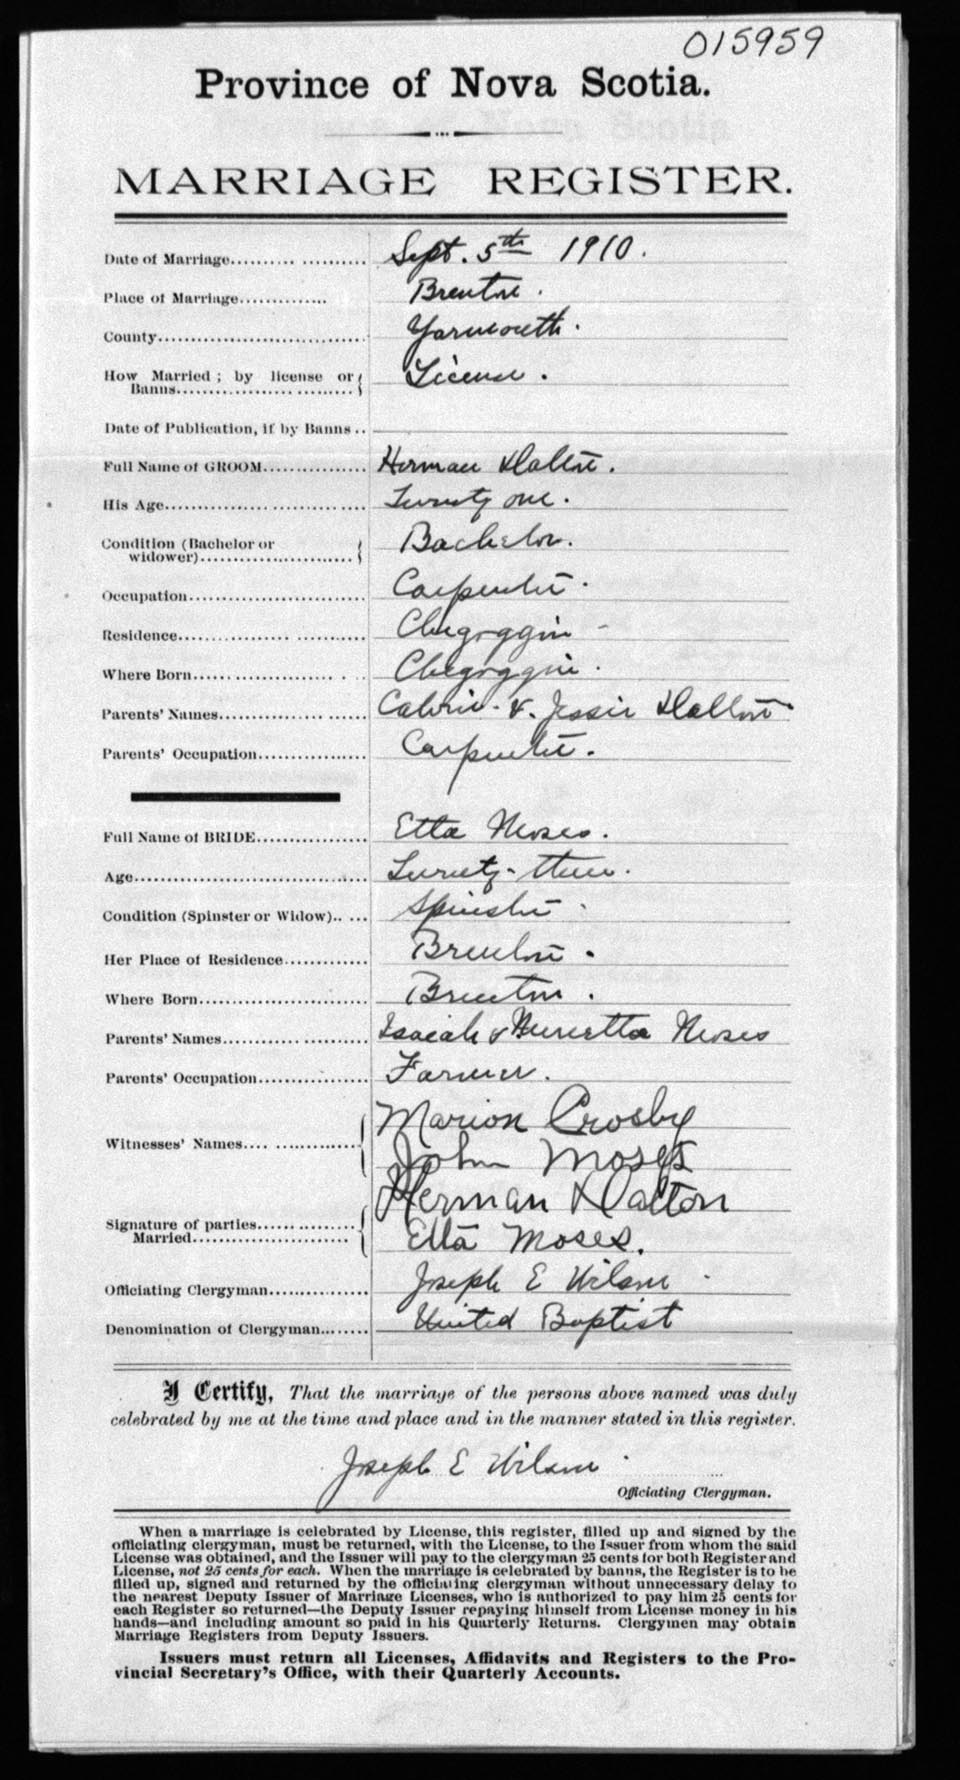 015959
Province of Nova Scotia.
MARRIAGE REGISTER.
Date of Marriage.................... Sept. 5th 1910.
Place of Marriage............. Brenton.
County................................ Yarmouth.
How Married ; by license or
Banns........................ License.
Date of Publication, if by Banns ..
Full Name of GROOM................ Herman Dalton.
His Age............................... Twenty one.
Condition (Bachelor or
widower)........................ Bachelor.
Occupation........................... Carpenter.
Residence........................... Chegoggin
Where Born........................ Chegoggin.
Parents' Names.................... Calvin & Jessie Dalton
Parents' Occupation................. Carpenter.
Full Name of BRIDE................. Etta Moses.
Age.................................... Twenty-three.
Condition (Spinster or Widow).. .... Spinster
Her Place of Residence............. Brenton.
Where Born.......................... Brenton.
Parents' Names...................... Isaiah & Murietta Moses
Parents' Occupation................. Farmer.
Marion Crosby
Witnesses' Names.... ..............
John Moses
Herman Dalton
Signature of parties................
Married........................ Etta Moses.
Officiating Clergyman............... Joseph E Wilson
Denomination of Clergyman........ United Baptist
I Certify, That the marriage of the persons above named was duly
celebrated by me at the time and place and in the manner stated in this register.
Joseph E Wilson
Officiating Clergyman.
When a marriage is celebrated by License, this register, filled up and signed by the
officiating clergyman, must be returned, with the License, to the Issuer from whom the said
License was obtained, and the Issuer will pay to the clergyman 25 cents for both Register and
License, not 25 cents for each. When the marriage is celebrated by banns, the Register is to be
filled up, signed and returned by the officiating clergyman without unnecessary delay to
the nearest Deputy Issuer of Marriage Licenses, who is authorized to pay him 25 cents for
each Register so returned—the Deputy Issuer repaying himself from License money in his
hands—and including amount so paid in his Quarterly Returns. Clergymen may obtain
Marriage Registers from Deputy Issuers.
Issuers must return all Licenses, Affidavits and Registers to the Pro-
vincial Secretary's Office, with their Quarterly Accounts.